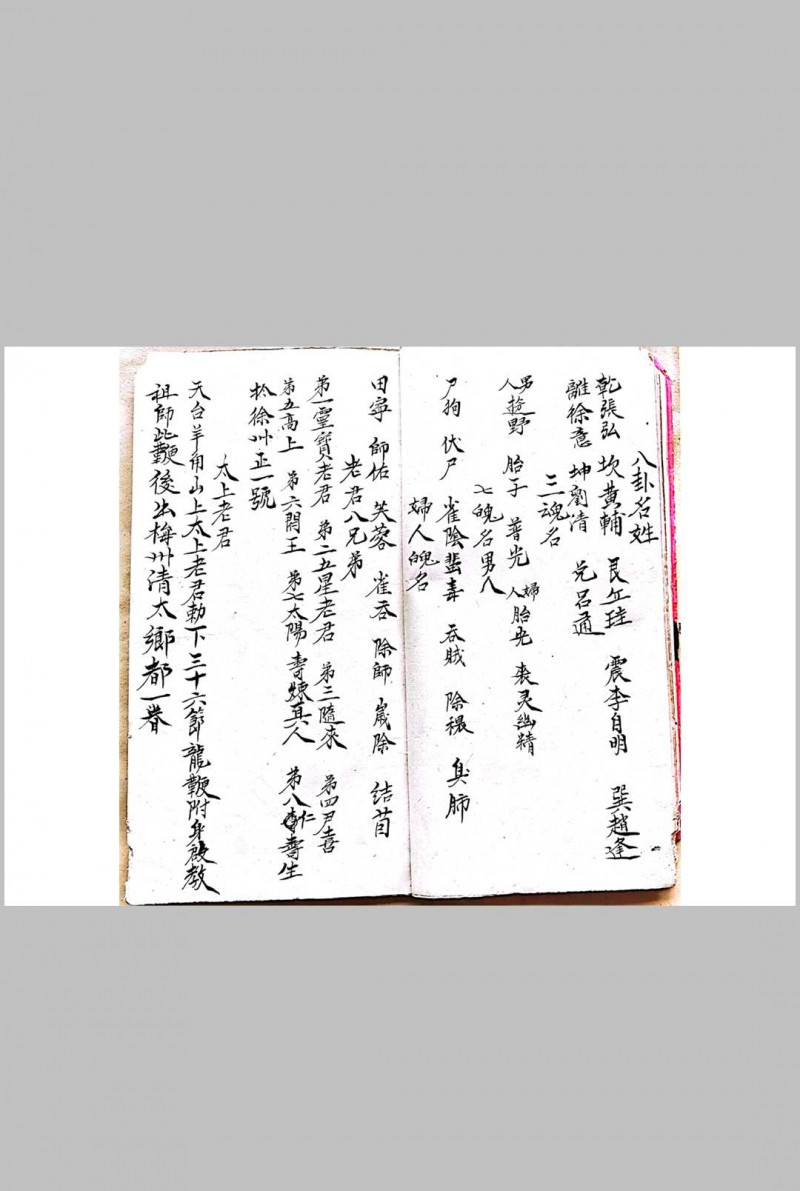 八卦名姓
乾張弘 坎黃輔 艮 珪 震李自明 巽趙逢
離徐意 坤劉清 兑呂通
三魂名
男人遊野 胎子 普光 婦人胎光 爽灵幽精
七魄名男人
尸狗 伏尸 雀陰蜚毒 吞賊 除穢 臭肺
婦人魄名
田寧 師佑 芙蓉 雀吞 除師 嵗除 結苜
老君八兄弟
第一靈寶老君 第二五星老君 第三隨來 第四尹喜
第五高上 第六閻王 第七太陽壽煉真人 第八仁壽生
扵徐州正一號
太上老君
天台羊角山上太上老君勅下三十六節龍鞭附身啟教
祖師此鞭後出梅州清太鄉都一眷